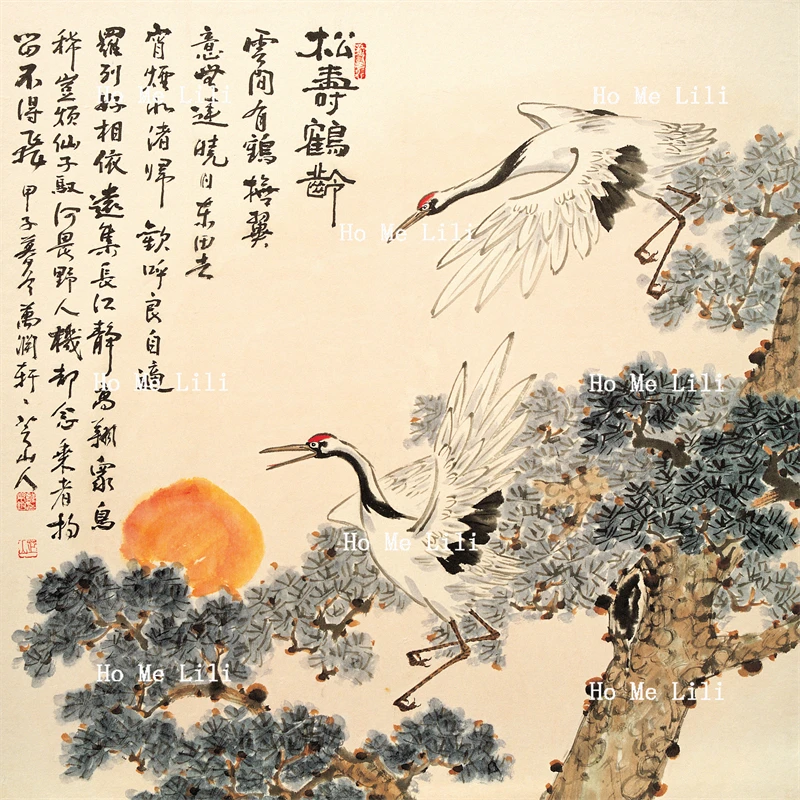 松壽鶴齡
雲間有鶴撫翼
意無違曉日東田去
宵煙北渚歸 歡呼良自適
羅列好相依遠集長江靜高翔眾鳥
稀豈煩仙子馭何畏野人機却念乘者拘
留不得飛 甲子暮冬萬潤軒 山人
Ho Me Lili
Ho Me Lili
Ho Me Lili
Ho Me Lili
Ho Me Lili
Ho Me Lili
Ho Me Lili
Ho Me Lili